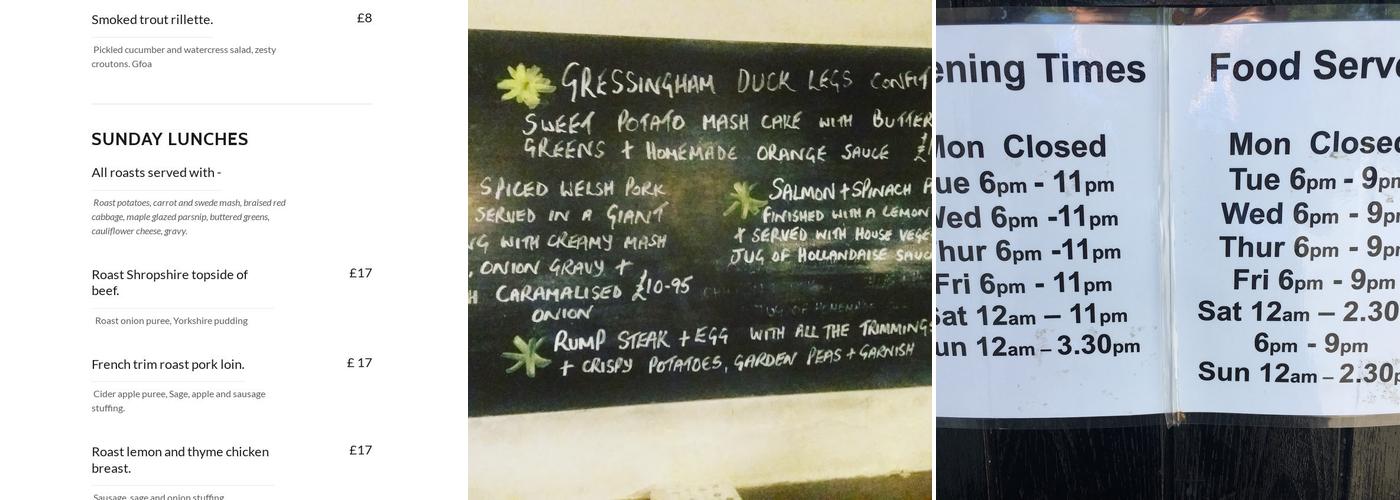 Smoked trout rillette. £8
Pickled cucumber and watercress salad, zesty
croutons. Gfoa
SUNDAY LUNCHES
All roasts served with -
Roast potatoes, carrot and swede mash, braised red
cabbage, maple glazed parsnip, buttered greens,
cauliflower cheese, gravy.
Roast Shropshire topside of £17
beef.
Roast onion puree, Yorkshire pudding
French trim roast pork loin. £ 17
Cider apple puree, Sage, apple and sausage
stuffing.
Roast lemon and thyme chicken £17
breast.
Sausage, sage and onion stuffing
GRESSINGHAM DUCK LEGS CONFIT
SWEET POTATO MASH CAKE WITH BUTTER
GREENS + HOMEMADE ORANGE SAUCE
SPICED WELSH PORK
SERVED IN A GIANT
WITH CREAMY MASH
, ONION GRAVY +
CARAMALISED £10-95
ONION
SALMON + SPINACH
FINISHED WITH A LEMON
+ SERVED WITH HOUSE VEGE
JUG OF HOLLANDAISE SAUC
RUMP STEAK + EGG WITH ALL THE TRIMMINGS
+ CRISPY POTATOES, GARDEN PEAS + GARNISH
ening Times
Mon Closed
ue 6pm - 11pm
Wed 6pm -11pm
hur 6pm -11pm
Fri 6pm - 11pm
Sat 12am – 11pm
un 12am – 3.30pm
Food Serve
Mon Closed
Tue 6pm - 9pm
Wed 6pm - 9pm
Thur 6pm - 9pm
Fri 6pm - 9pm
Sat 12am – 2.30
6pm - 9pm
Sun 12am – 2.30p